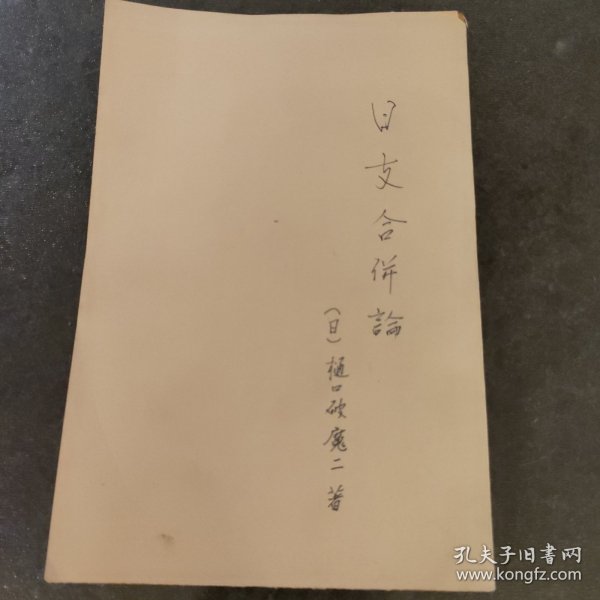 日支合併論
(日)樋口破魔二著
孔夫子旧書网
www.kongfz.com